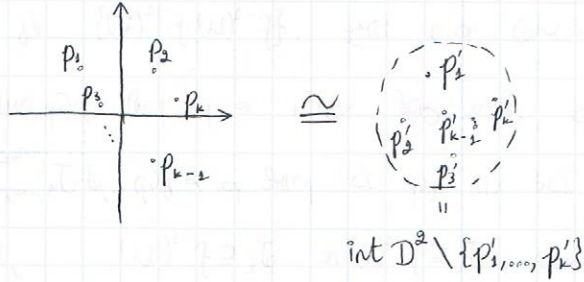 p₁ p₂
p₃ pₖ
pₖ₋₁
≅
p₁'
p₂' p'ₖ₋₁ pₖ'
p₃'
=
int D² \ {p₁', ..., pₖ'}